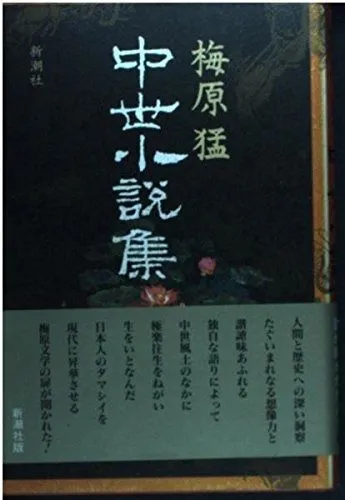 梅原猛
中世小説集
新潮社
人間と歴史への深い洞察
たぐいまれなる想像力と
諧謔味あふれる
独自な語りによって
中世風土のなかに
極楽往生をねがい
生をいとなんだ
日本人のタマシイを
現代に昇華させる
梅原文学の扉が開かれた!
新潮社版